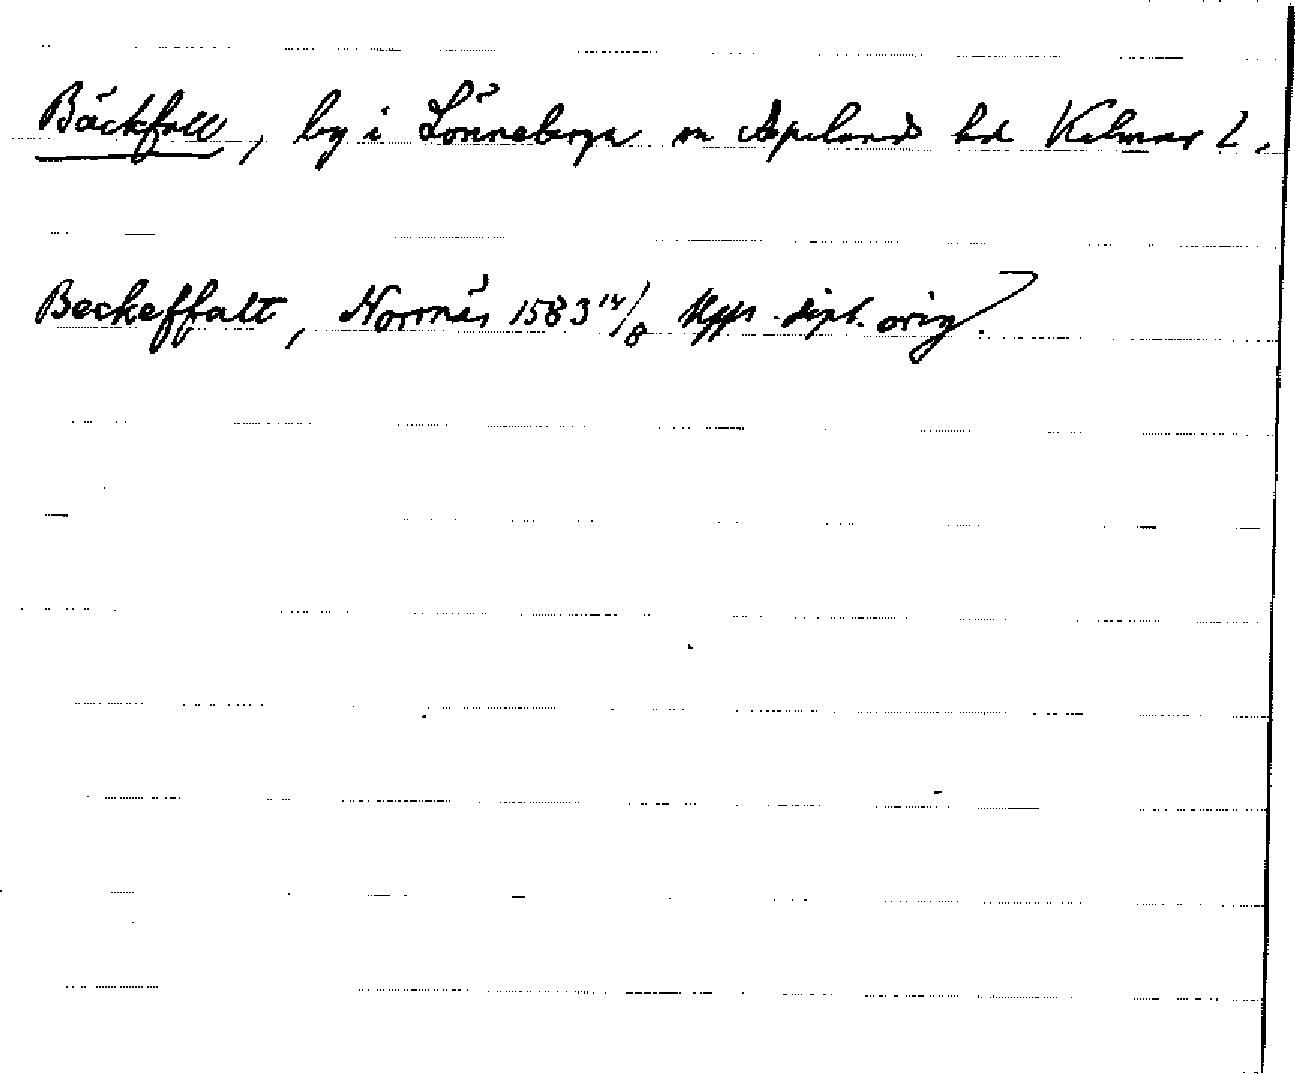 Bäckfall, by i Lönneberga sn Aspelands hd Kalmar L.
Beckeffalt, Norrnäs 1583 14/8 Upps. dipl. orig.